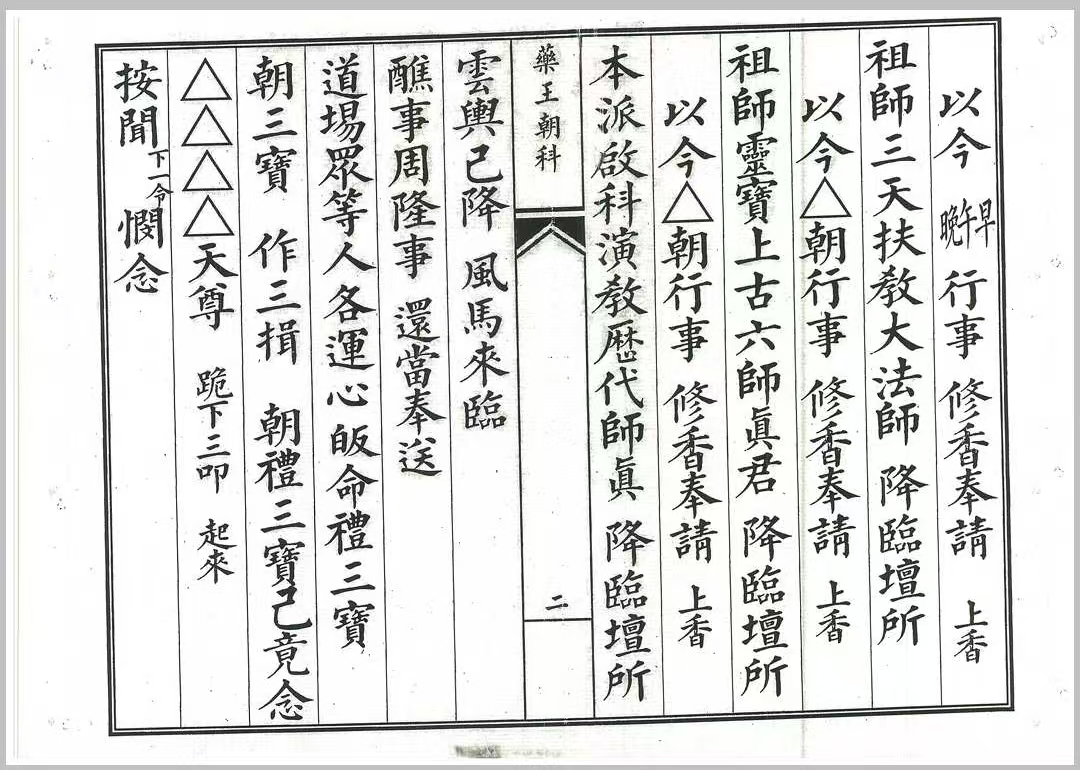 以今 早午晚 行事 修香奉請 上香
祖師三天扶教大法師 降臨壇所
以今△朝行事 修香奉請 上香
祖師靈寶上古六師眞君 降臨壇所
以今△朝行事 修香奉請 上香
本派啟科演教歷代師眞 降臨壇所
藥王朝科
二
雲輿已降 風馬來臨
醮事周隆事 還當奉送
道場眾等人各運心皈命禮三寶
朝三寶 作三揖 朝禮三寶已竟念
△△△△天尊 跪下三叩 起來
按聞下一令憫念